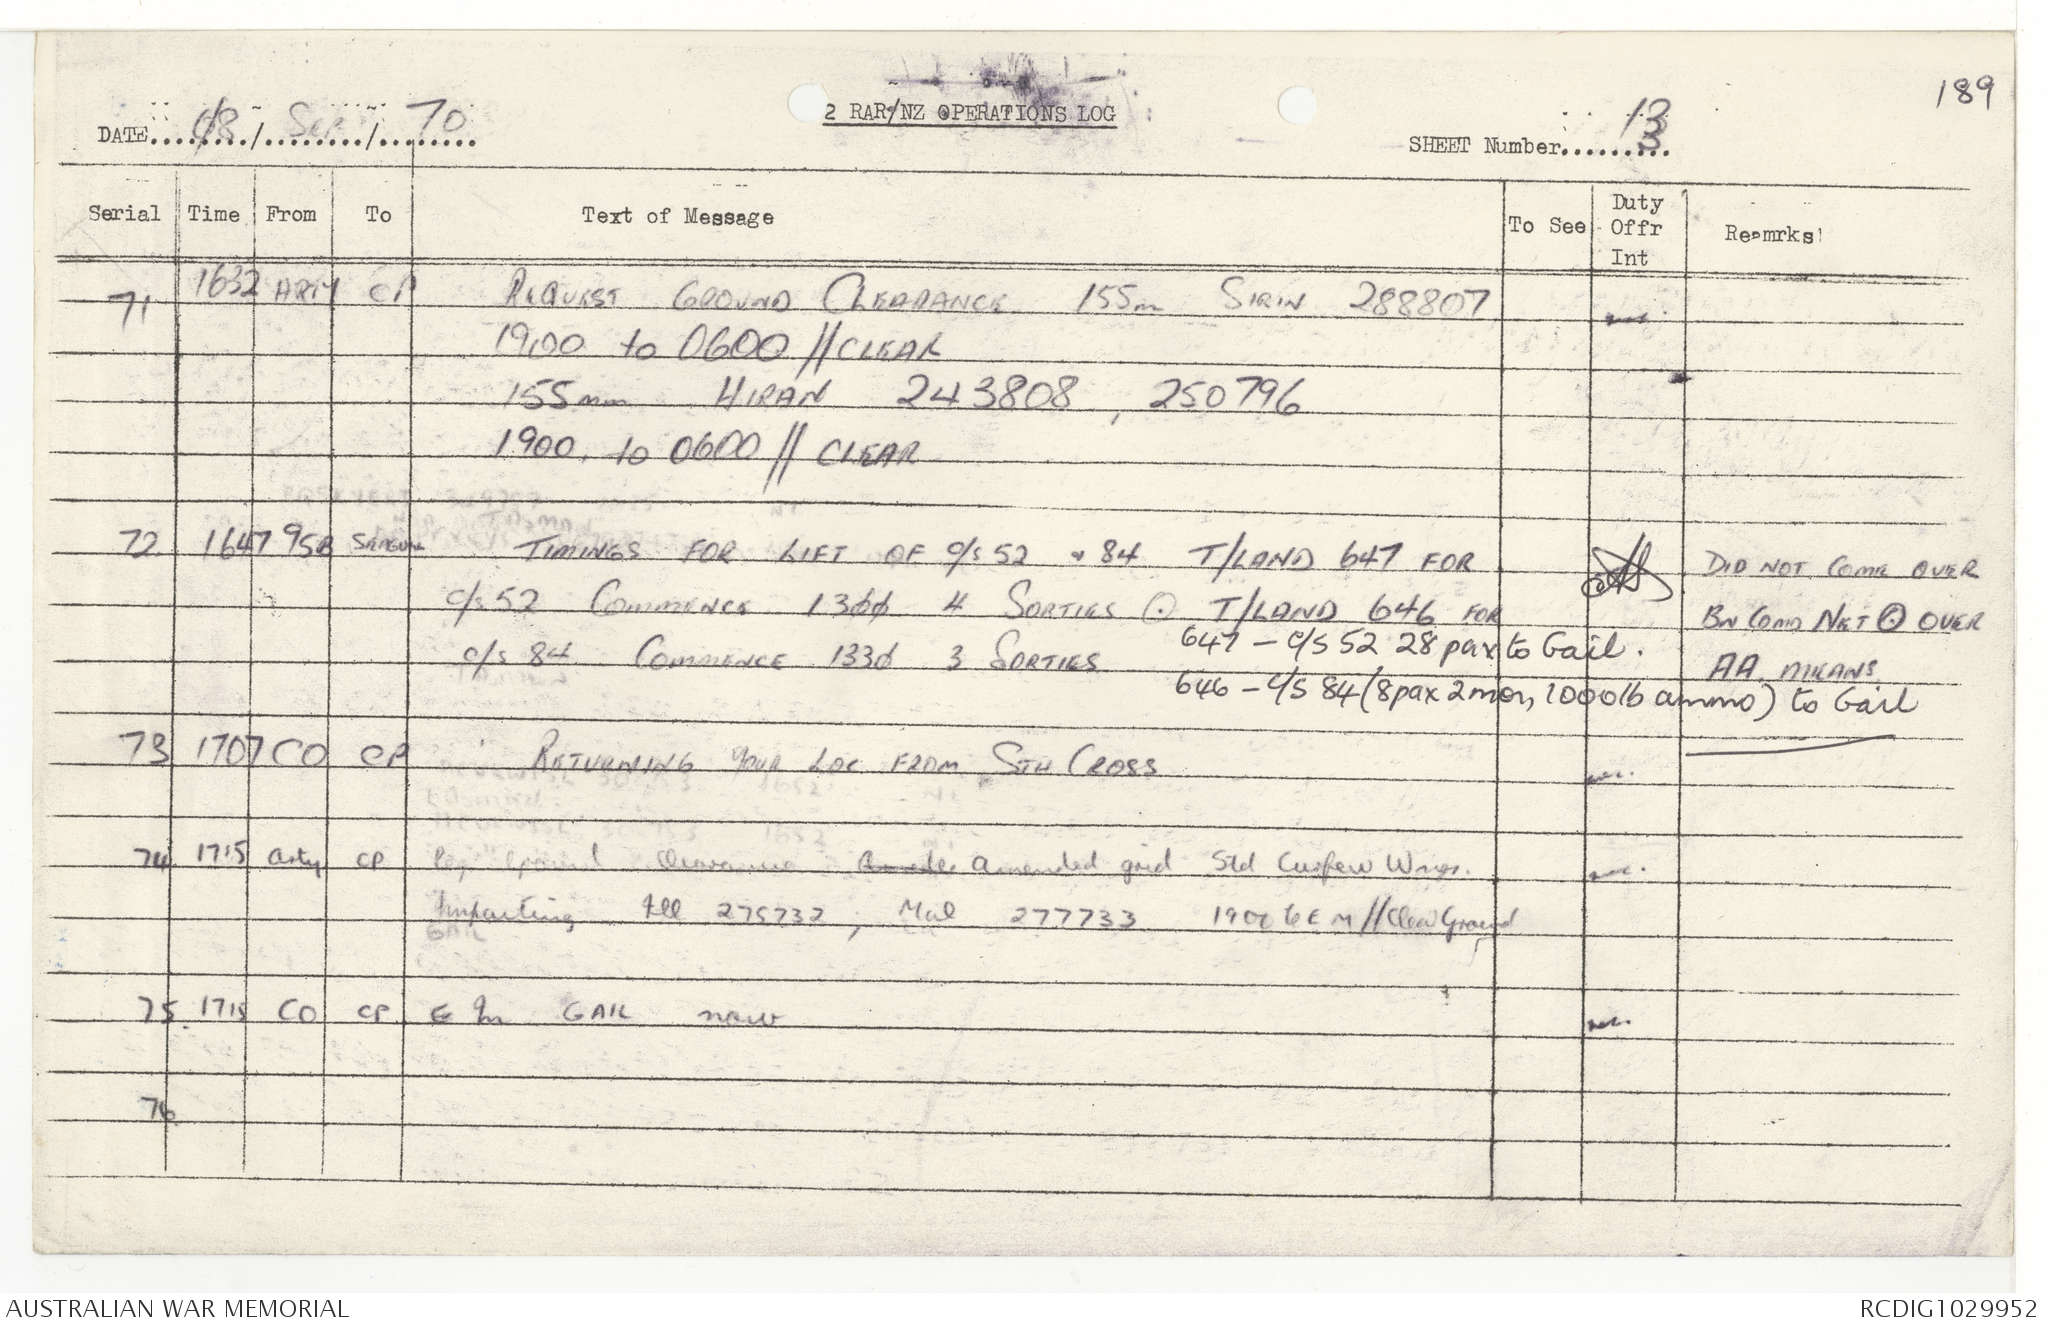 189
2 RAR/NZ OPERATIONS LOG
DATE 08 / Sep / 70
SHEET Number 13
Serial Time From To Text of Message To See Duty Offr Int Reamrks
71 1632 ARTY CP REQUEST GROUND CLEARANCE 155m SIRIN 288807
1900 to 0600 // CLEAR
155mm HIRAN 243808, 250796
1900. to 0600 // CLEAR
72 1647 95B TIMINGS FOR LIFT OF C/S 52 & 84 T/LAND 647 FOR DID NOT COME OVER
C/S 52 COMMENCE 1300 4 SORTIES ⊙ T/LAND 646 FOR BN COMD NET ⊙ OVER
C/S 84 COMMENCE 1330 3 SORTIES 647 - C/S 52 28 pax to Gail. AA MEANS
646 - C/S 84 (8pax 2mor, 1000lb ammo) to Gail
73 1707 CO CP RETURNING YOUR LOC FROM STH CROSS
74 1715 arty CP Req Ground Clearance amended grid Std Curfew Wngs.
Impacting Ill 275732, Mal 277733 1900 to EM // Clear Ground
75 1715 CO CP E In GAIL now
76
AUSTRALIAN WAR MEMORIAL
RCDIG1029952